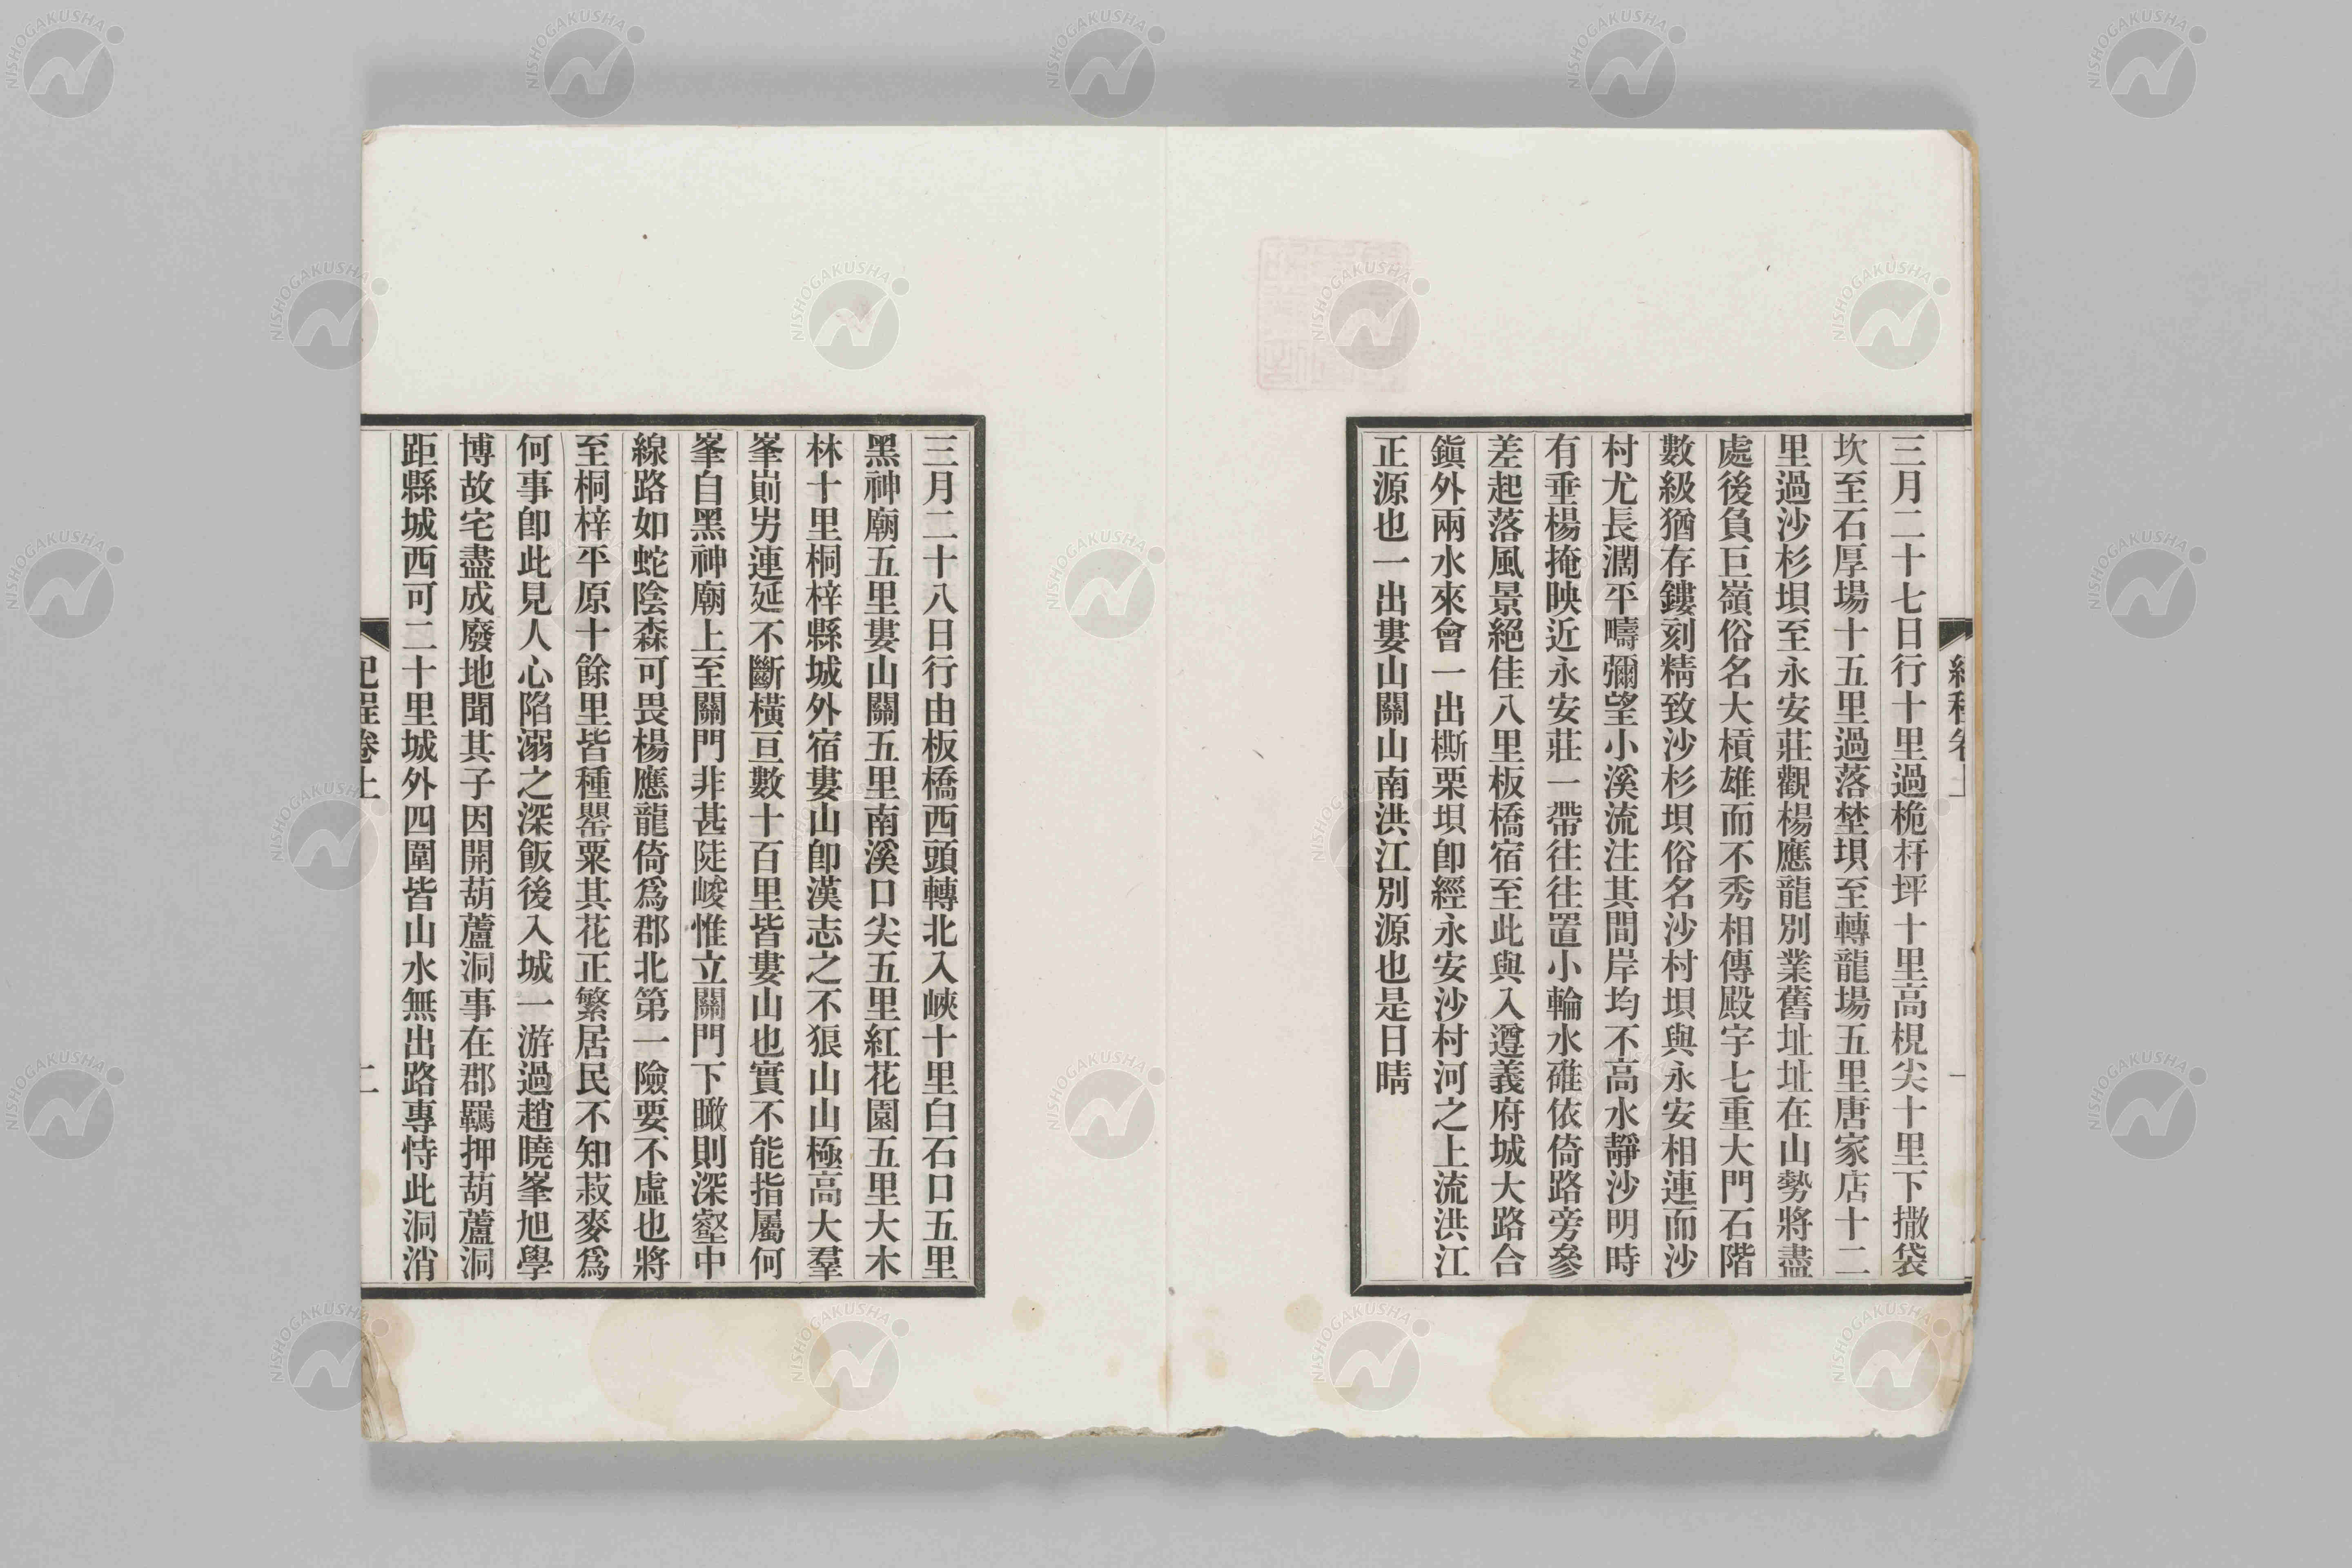 三月二十七日行十里過桅杆坪十里高梘尖十里下撒袋
坎至石厚場十五里過落埜垻至轉龍場五里唐家店十二
里過沙杉垻至永安莊觀楊應龍別業舊址址在山勢將盡
處後負巨嶺俗名大槓雄而不秀相傳殿宇七重大門石階
數級猶存鏤刻精致沙杉垻俗名沙村垻與永安相連而沙
村尤長濶平疇彌望小溪流注其間岸均不高水靜沙明時
有垂楊掩映近永安莊一帶往往置小輪水碓依倚路旁參
差起落風景絕佳八里板橋宿至此與入遵義府城大路合
鎭外兩水來會一出橛栗垻卽經永安沙村河之上流洪江
正源也一出婁山關山南洪江別源也是日晴
三月二十八日行由板橋西頭轉北入峽十里白石口五里
黑神廟五里婁山關五里南溪口尖五里紅花園五里大木
林十里桐梓縣城外宿婁山卽漢志之不狼山山極高大羣
峯崱屴連延不斷橫亘數十百里皆婁山也實不能指屬何
峯自黑神廟上至關門非甚陡峻惟立關門下瞰則深壑中
線路如蛇陰森可畏楊應龍倚爲郡北第一險要不虛也將
至桐梓平原十餘里皆種罌粟其花正繁居民不知菽麥爲
何事卽此見人心陷溺之深飯後入城一游過趙曉峯旭學
博故宅盡成廢地聞其子因開葫蘆洞事在郡羈押葫蘆洞
距縣城西可二十里城外四圍皆山水無出路專恃此洞消
紀程卷上
二
NISHOGAKUSHA